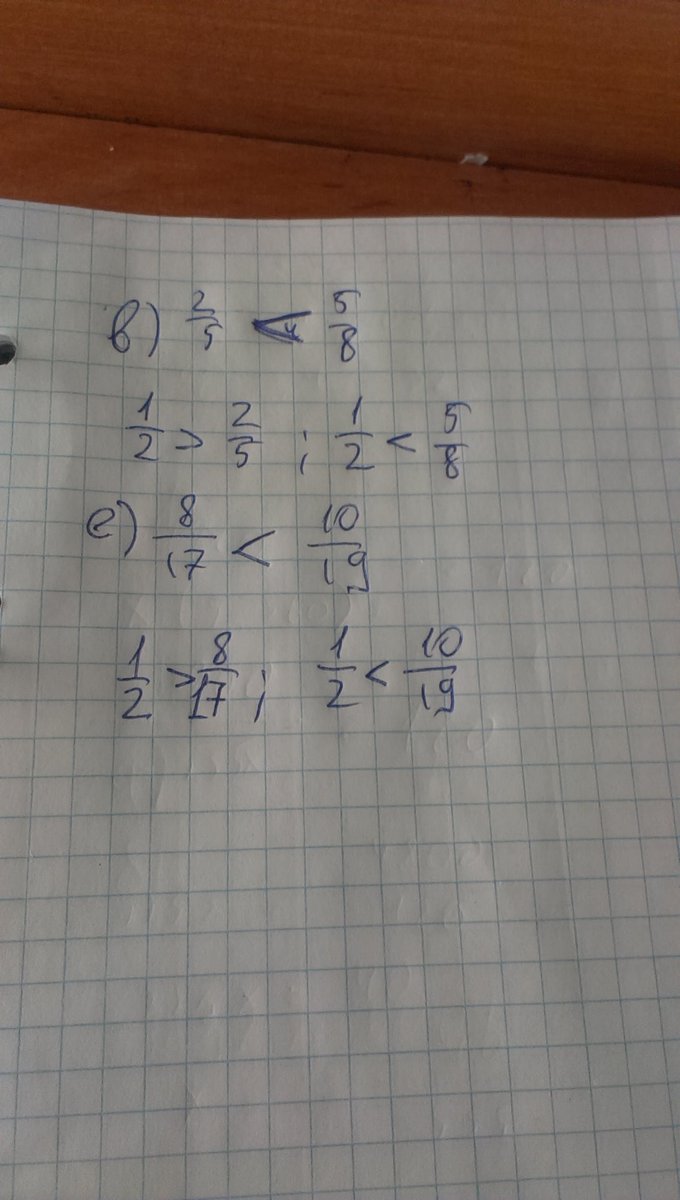 в) 2/5 < 5/8
1/2 > 2/5 ; 1/2 < 5/8
е) 8/17 < 10/19
1/2 > 8/17 ; 1/2 < 10/19